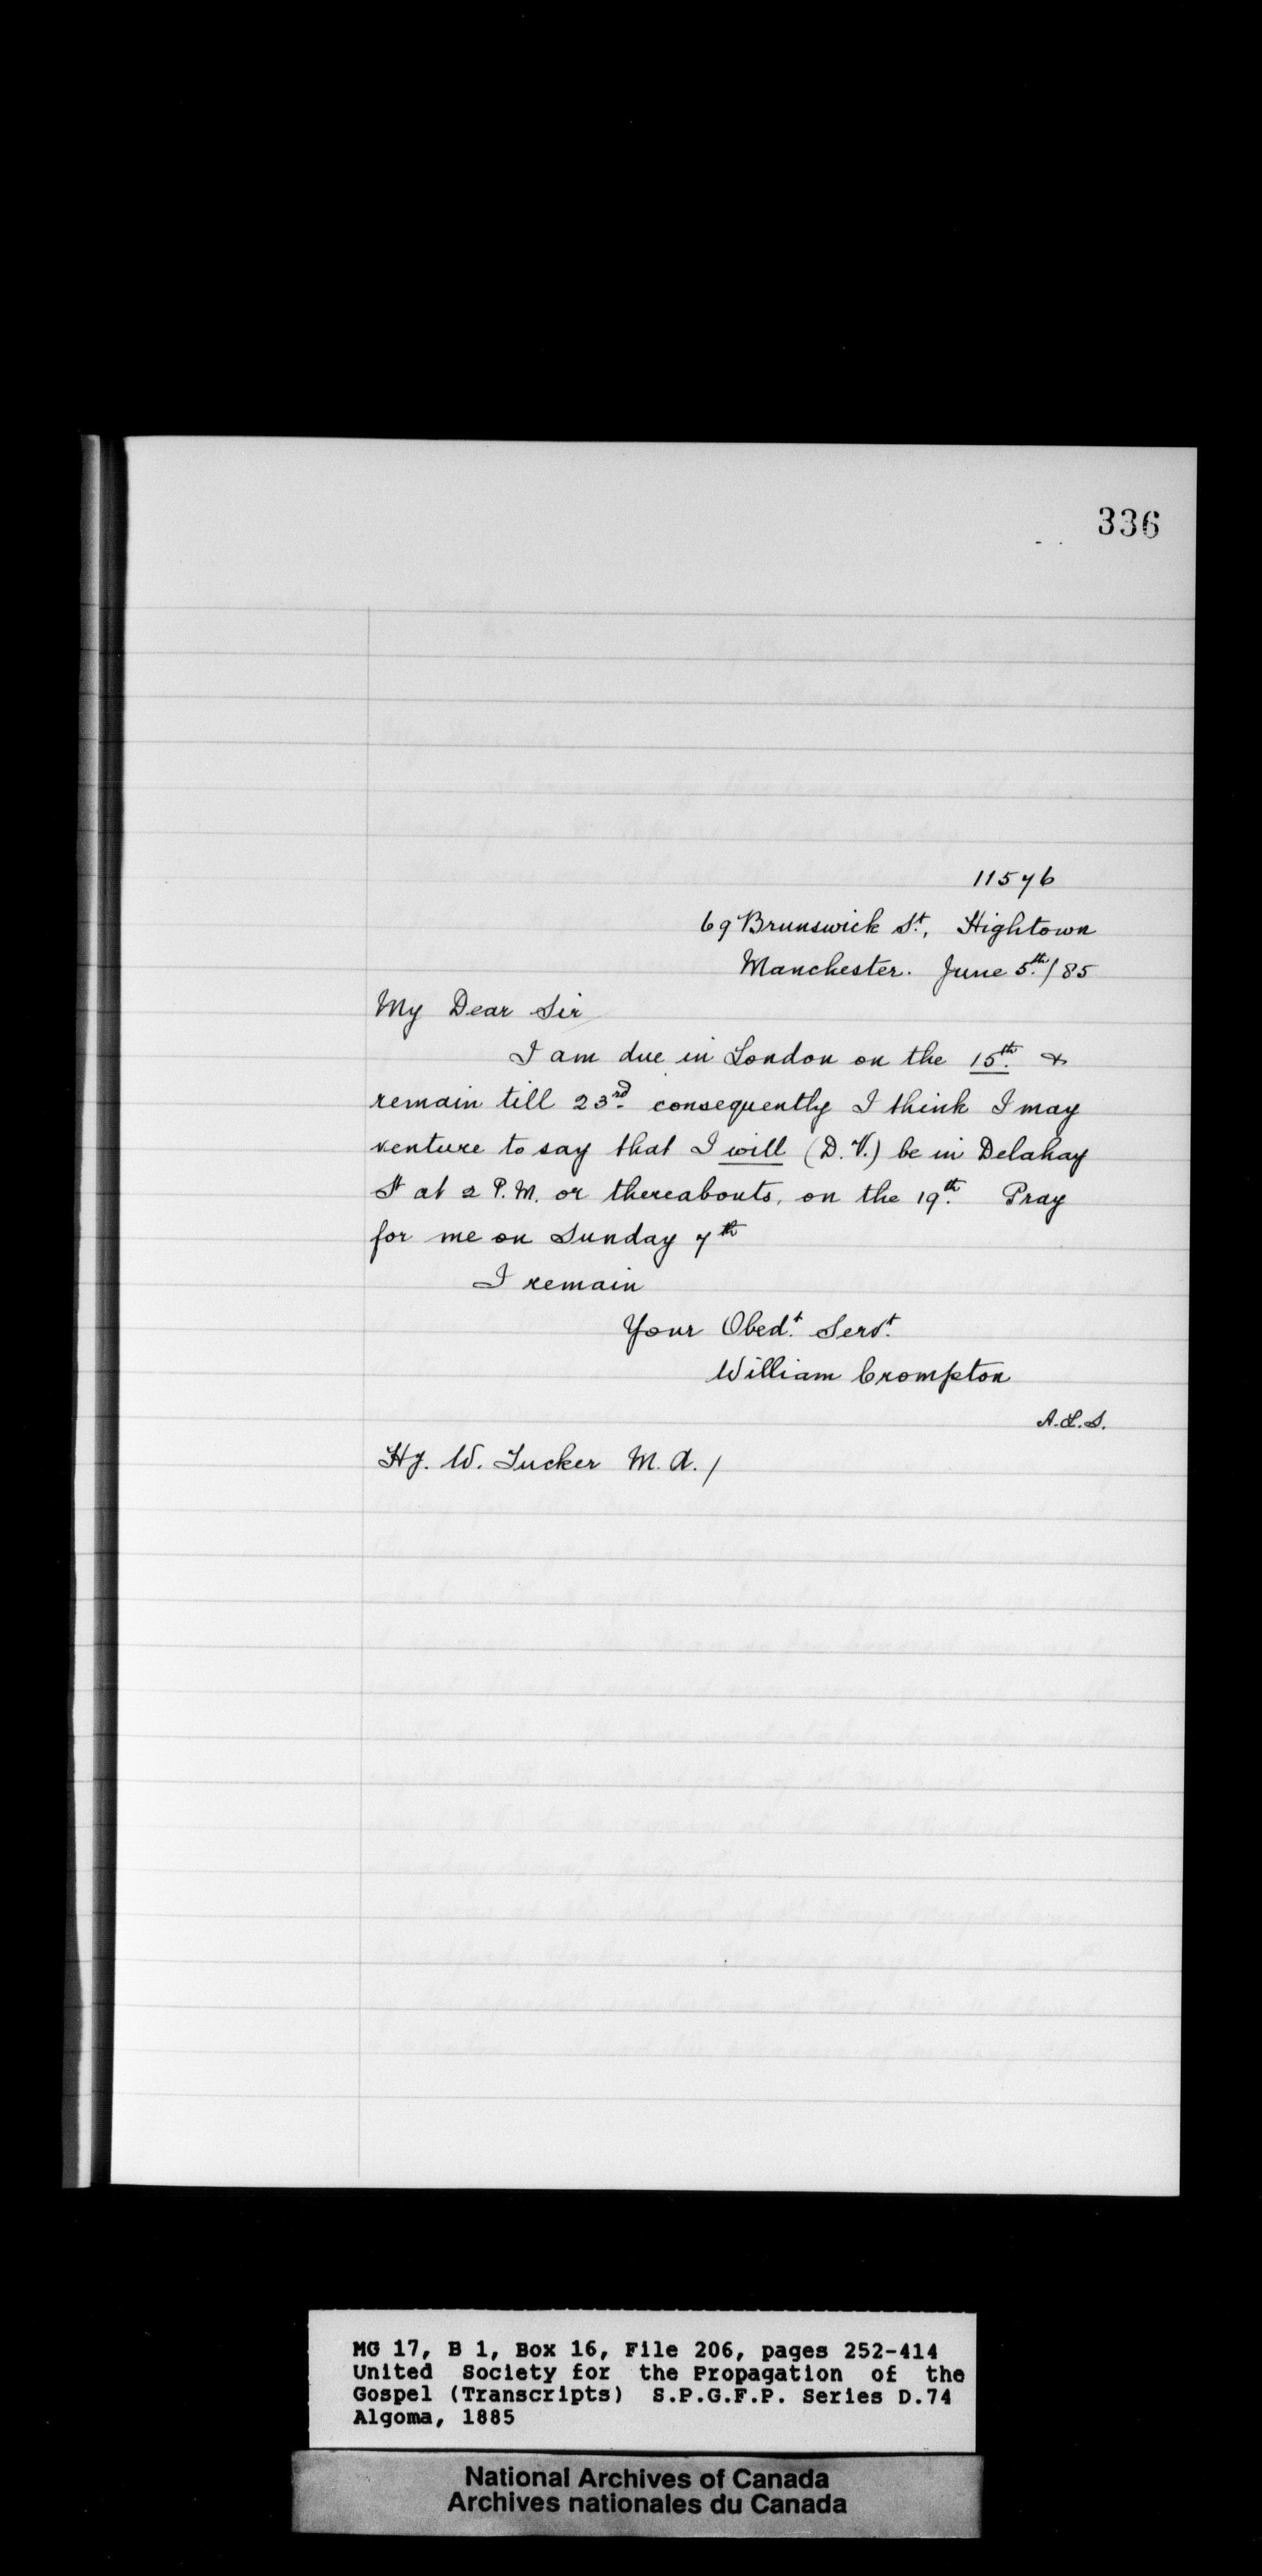 336
11576
69 Brunswick St., Hightown
Manchester. June 5th./85
My Dear Sir
I am due in London on the 15th. &
remain till 23rd. consequently I think I may
venture to say that I will (D.V.) be in Delahay
St at 2 P.M. or thereabouts, on the 19th. Pray
for me on Sunday 7th
I remain
Your Obedt. Servt.
William Crompton
A.L.S.
Hy. W. Tucker M.A./
MG 17, B 1, Box 16, File 206, pages 252-414
United Society for the Propagation of the
Gospel (Transcripts) S.P.G.F.P. Series D.74
Algoma, 1885
National Archives of Canada
Archives nationales du Canada